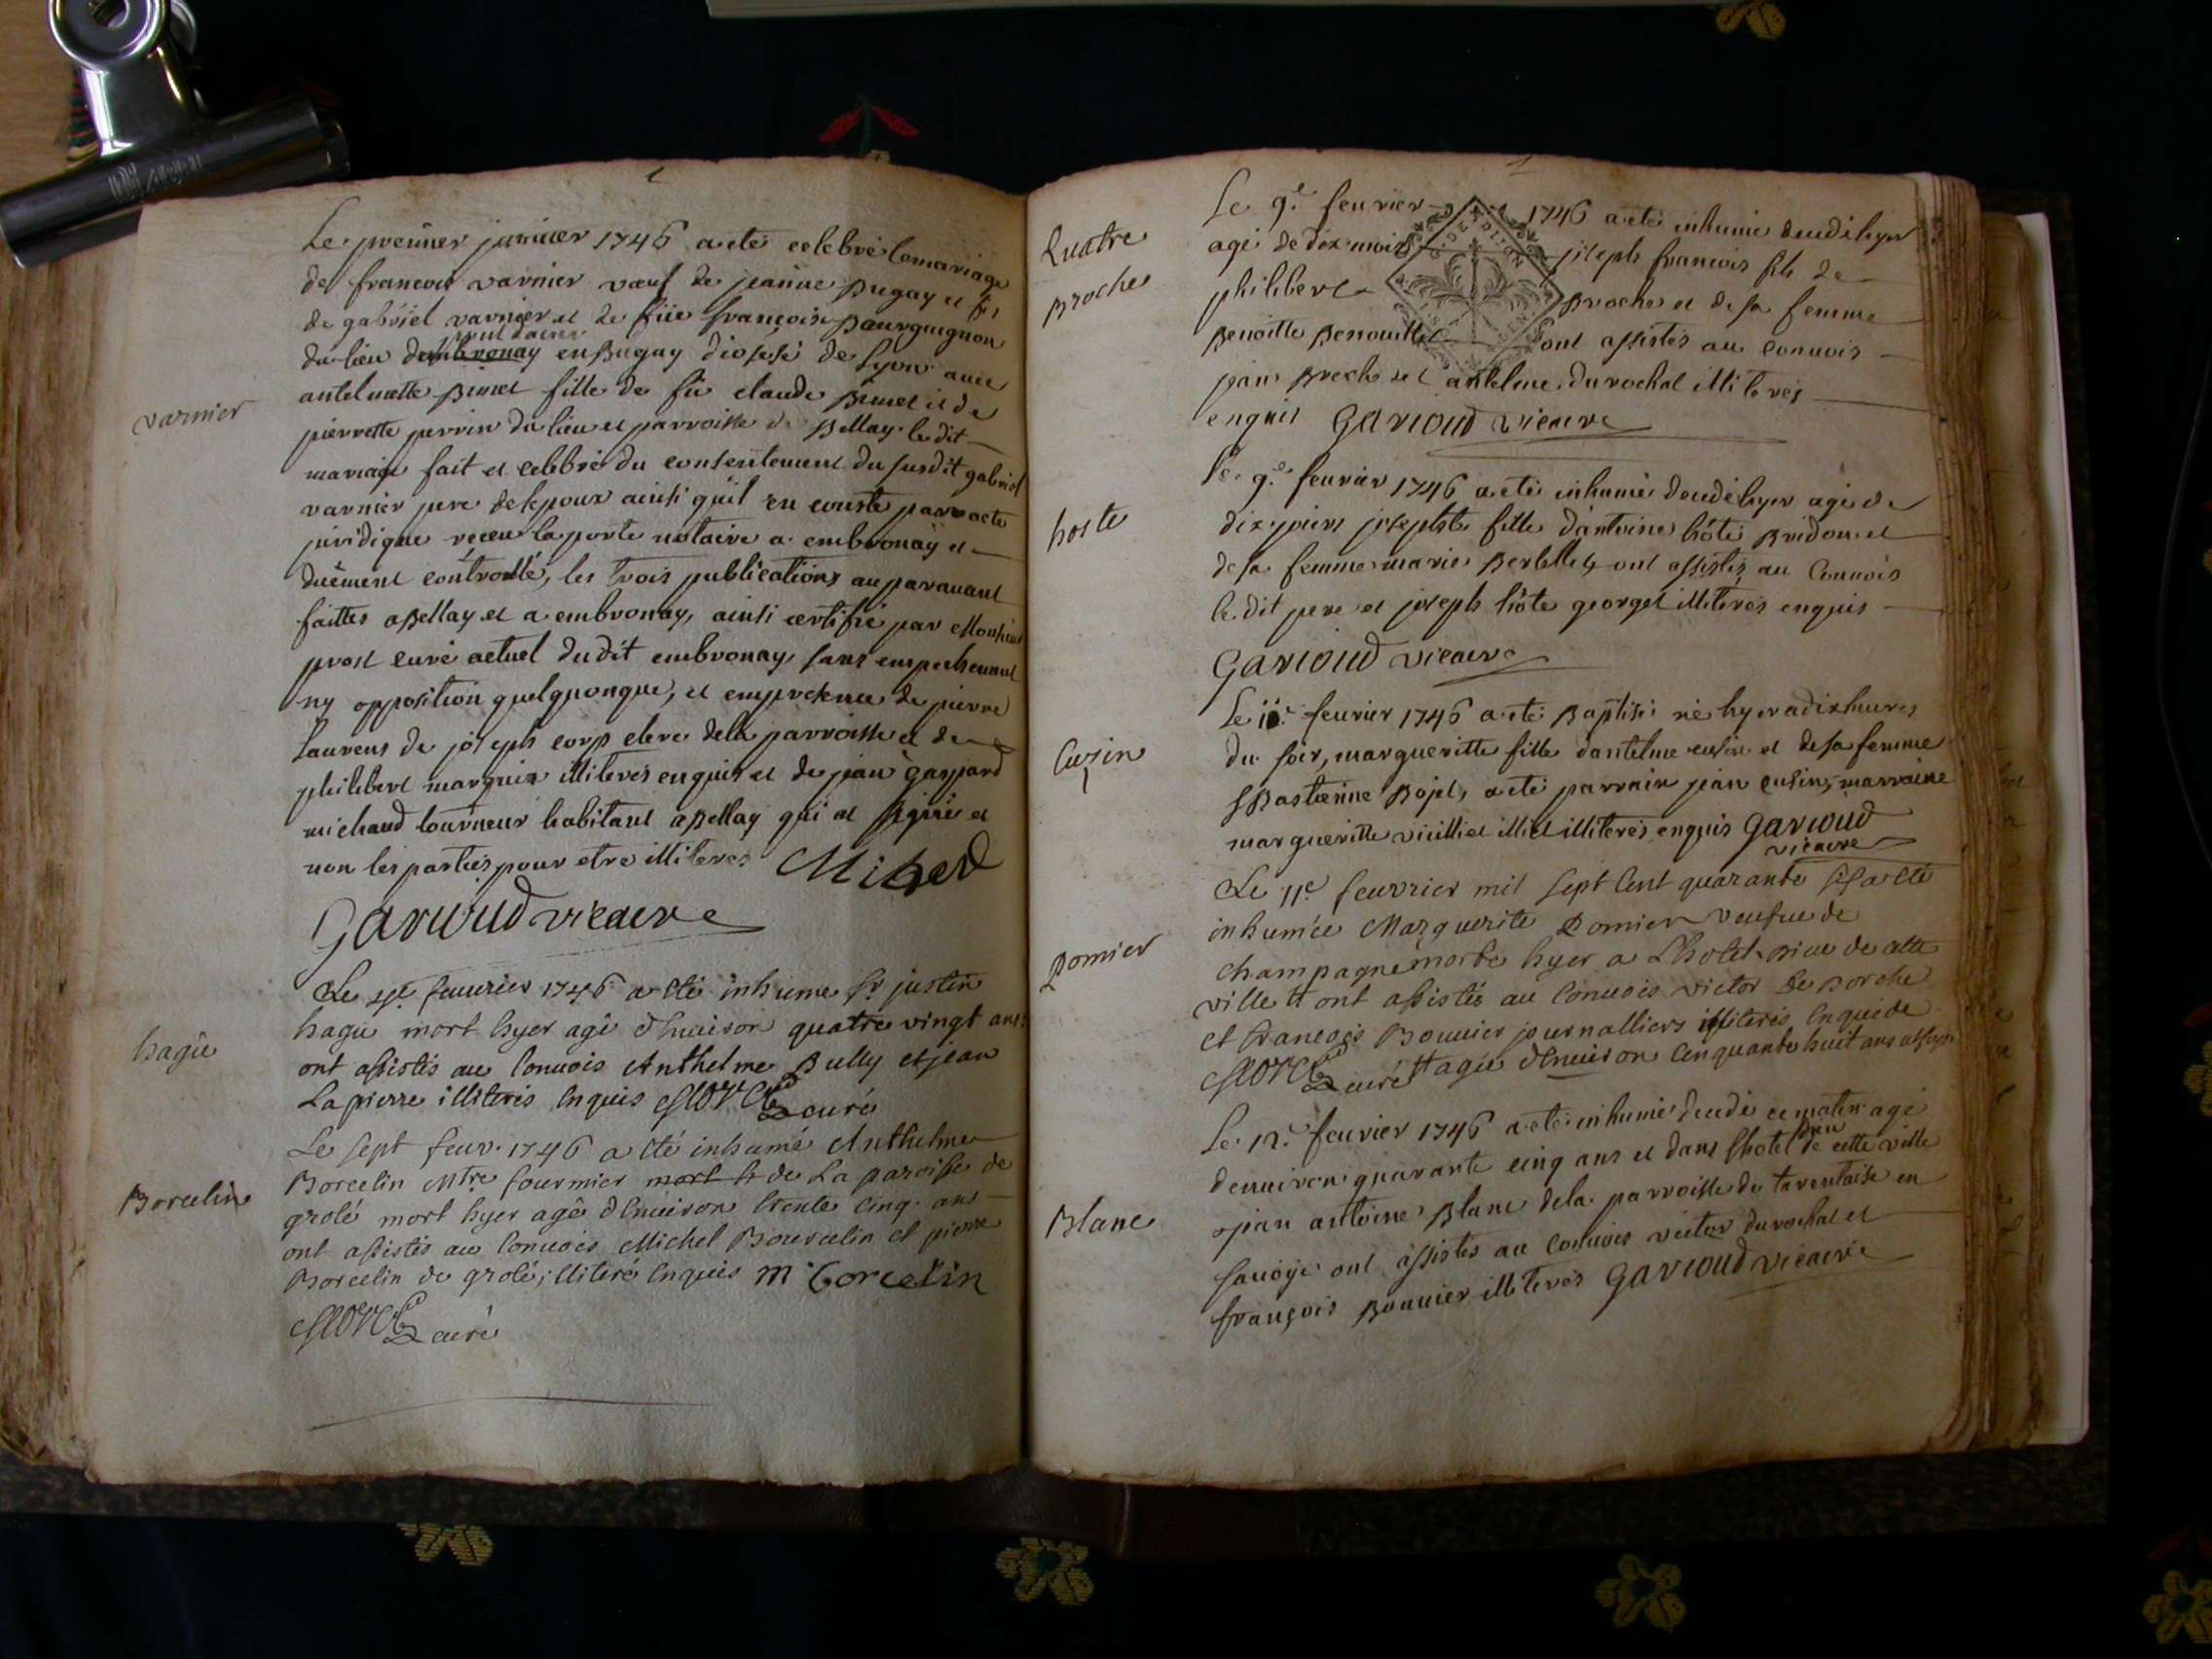 Le premier janvier 1746 a eté celebré le mariage
de francois varnier vœuf de jeanne Bugay et fils
de gabriel varnier et de füe françoise Bourguignon
du lieu dembronay en Bugay diosese de Lyon avec
antelmette Binet fille de fü claude Binet et de
varnier
pierrette perrin du lieu et parroisse de Bellay le dit
mariage fait et celebré du consentement du susdit gabriel
varnier pere de lepoux ainsi quil en conste par acte
juridique receu la porte notaire a embronay et
duëment controllé, les trois publications auparavant
faittes a Bellay et a embronay, ainsi certifié par Monsieur
prost curé actuel du dit embronay sans empechement
ny opposition quelquonque, et en presence de pierre
Laurens de joseph corp clerc de la parroisse et de
philibert marquis illiterés enquis et de jean gaspard
michaud tourneur habitant a Bellay qui a signé et
non les parties pour etre illiteres Miched
Garioud vicaire
Le fevrier 1746 a eté inhume Sr justin
hagüe
hagüe mort hyer agé d'Environ quatre vingt ans
ont assistés au Convois Anthelme Bully et jean
Lapierre illiterés Enquis curé
Le sept fevr. 1746 a eté inhumé Anthelme
Borcelin
Borcelin Mtre fournier mort h de La paroisse de
grolé mort hyer agé d'Environ trente cinq ans
ont assistés au Convois Michel Bourcelin et pierre
Borcelin de grolé, illiteré Enquis m borcelin
curé
Quatre
Broches
Le 9e fevrier 1746 a eté inhumé decedé hyer
agé de dix mois joseph francois fils de
philibert Broches et de sa femme
Benoitte Benouillet ont assistés au convois
jean Broche et antelme durochat illiterés
enquis Garioud vicaire
hoste
Le 9e fevrier 1746 a eté inhumé decedé hyer agé de
dix jours josephte fille d'antoine hôte Bridon et
de sa femme marie Berlellet, ont assistés au Convois
le dit pere et joseph hôte georget illiterés enquis
Garioud vicaire
Cuzin
Le fevrier 1746 a eté Baptisé né hyer a dix heures
du soir, margueritte fille dantelme cusin et de sa femme
sBastienne Bojet, a eté parrain jean cusin, marraine
margueritte illiterés enquis Garioud
vicaire
Le 11e fevvrier mil sept Cent quarante six a eté
Pomier
inhumée Marguerite Pomier veufue de
champagne morte hyer a Lhotel dieu de cette
ville # ont assistés au Convois victor De Borche
et francois Bouvier journalliers illiterés Enquis de
curé # agée d'Environ Cinquante huit ans
Blanc
Le 12e fevrier 1746 a eté inhumé decedé ce matin agé
denviron quarante cinq ans et dans lhotel dieu de cette ville
jean antoine Blanc de la parroisse de tarentaise en
savoye ont assistés au convois victor durochat et
françois Bouvier illiterés Garioud vicaire